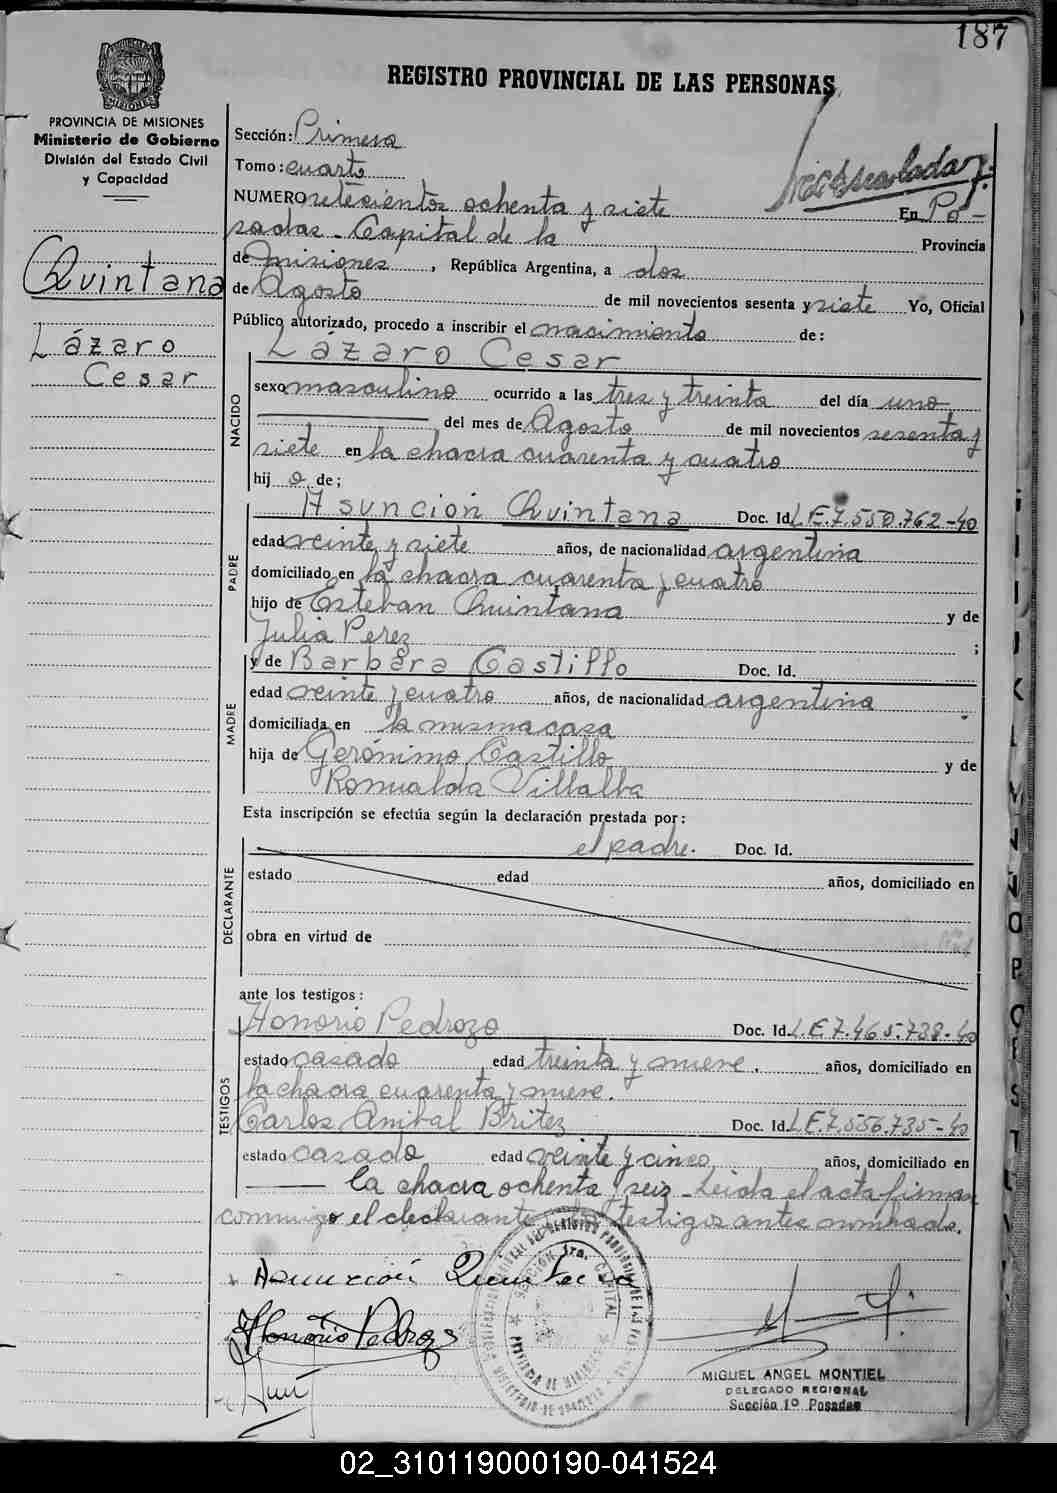 187
REGISTRO PROVINCIAL DE LAS PERSONAS
PROVINCIA DE MISIONES
Ministerio de Gobierno
División del Estado Civil
y Capacidad
Quintana
Lázaro
Cesar
Sección: Primera
Tomo: cuarto
NUMERO setecientos ochenta y siete En Po-
sadas - Capital de la Provincia
de Misiones, República Argentina, a dos
de Agosto de mil novecientos sesenta y siete Yo, Oficial
Público autorizado, procedo a inscribir el nacimiento de:
Lázaro Cesar
NACIDO
sexo masculino ocurrido a las tres y treinta del día uno
del mes de Agosto de mil novecientos sesenta y
siete en la chacra cuarenta y cuatro
hijo de;
PADRE
Asunción Quintana Doc. Id. L.E.7.550.762-40
edad veinte y siete años, de nacionalidad argentina
domiciliado en la chacra cuarenta y cuatro
hijo de Esteban Quintana y de
Julia Perez ;
MADRE
y de Barbara Castillo Doc. Id.
edad veinte y cuatro años, de nacionalidad argentina
domiciliada en la misma casa
hija de Gerónimo Castillo y de
Romualda Villalba
Esta inscripción se efectúa según la declaración prestada por:
el padre. Doc. Id.
DECLARANTE
estado edad años, domiciliado en
obra en virtud de
ante los testigos:
TESTIGOS
Honorio Pedrozo Doc. Id. L.E.7.465.738-40
estado casado edad treinta y nueve. años, domiciliado en
la chacra cuarenta y nueve.
Carlos Anibal Britez Doc. Id. L.E.7.556.735-40
estado casado edad veinte y cinco años, domiciliado en
la chacra ochenta y seis - Leida el acta firman
conmigo el declarante y los testigos antes nombrado.
Asunción Quintana
Honorio Pedrozo
SECCION 1ra. CAPITAL
PROVINCIA DE MISIONES
MIGUEL ANGEL MONTIEL
DELEGADO REGIONAL
Sección 1º Posadas
02_310119000190-041524